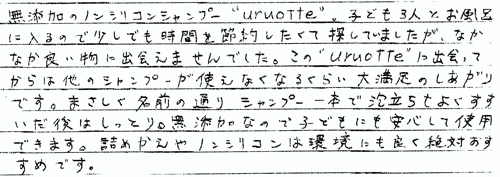 無添加のノンシリコンシャンプー"uruotte"。子ども3人とお風呂
に入るので少しでも時間を節約したくて探していましたが、なか
なか良い物に出会えませんでした。この"uruotte"に出会って
からは他のシャンプーが使えなくなるくらい大満足のしあがり
です。まさしく名前の通りシャンプー一本で泡立ちもよくすす
いだ後はしっとり。無添加なので子どもにも安心して使用
できます。詰めかえやノンシリコンは環境にも良く絶対おす
すめです。